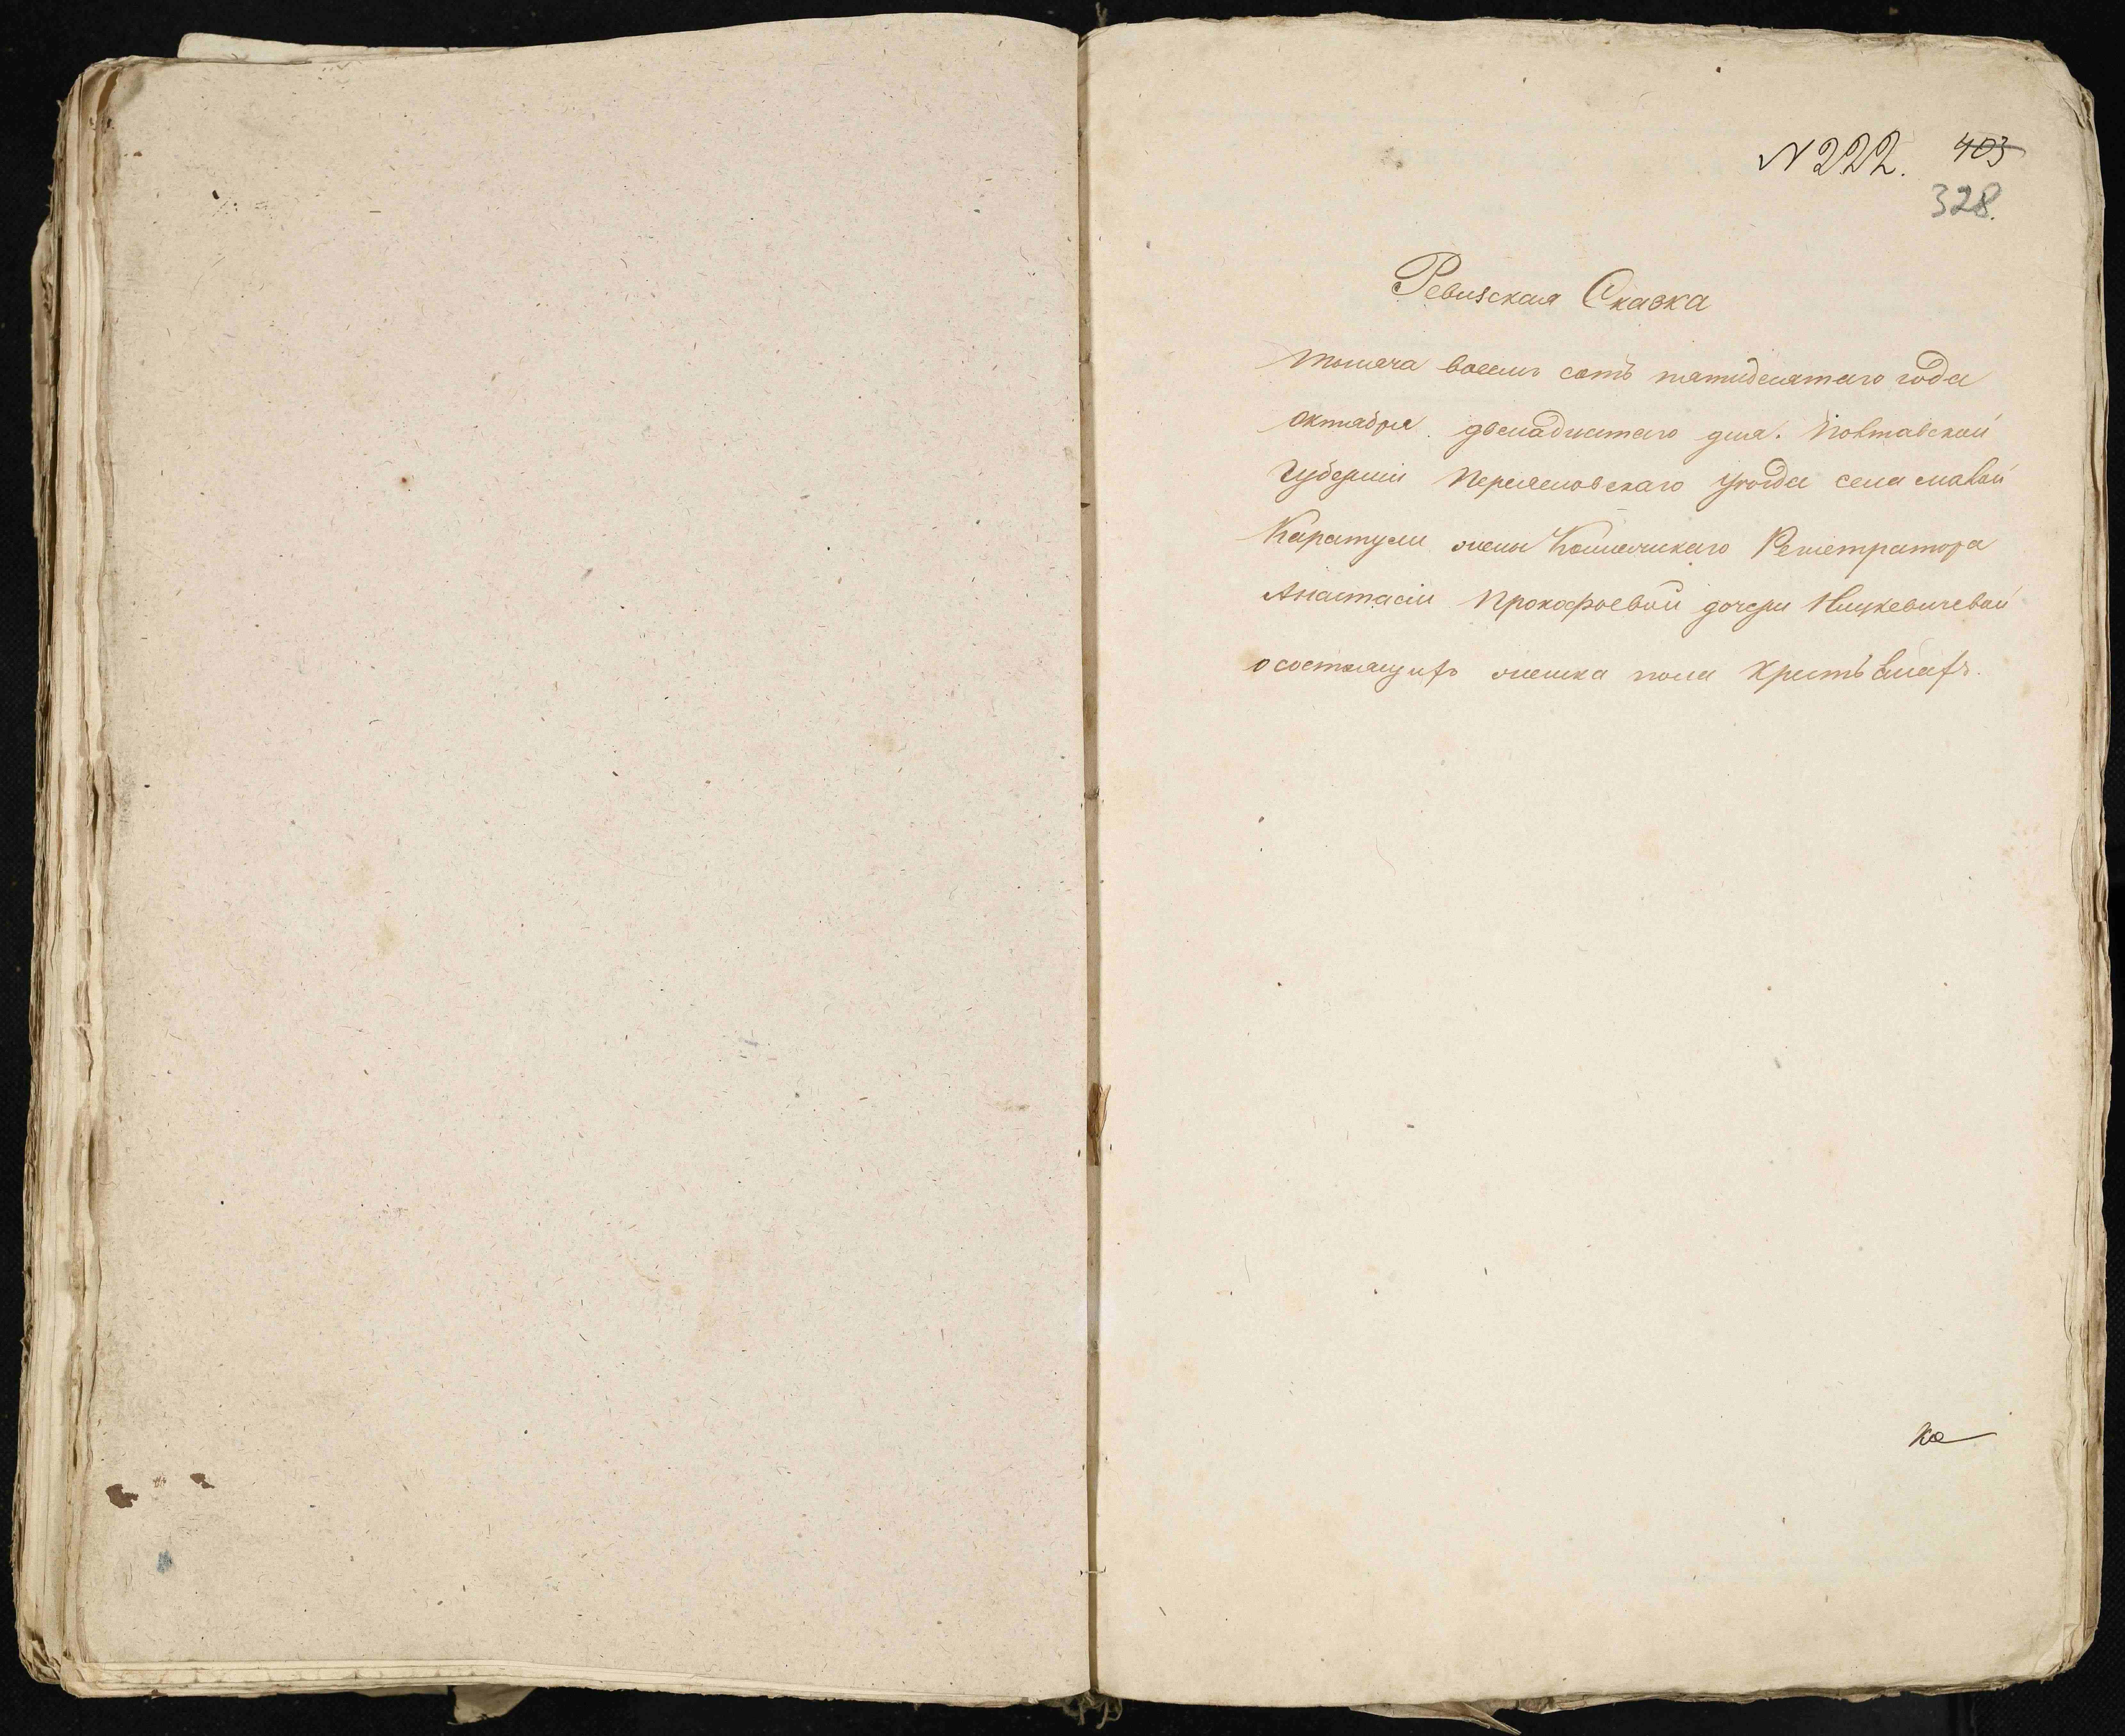 N 222. 403
328.
Ревизская Сказка
тысяча восемь сотъ пятидесятаго года
октября двенадцатаго дня. Полтавской
Губерніи Переяславскаго уезда села малой
Каратули жены Колежскаго Регистратора
Анастасіи Прокофьевой дочери Ницкевичевой
о состоящихъ женска пола крестьянахъ.
Ко